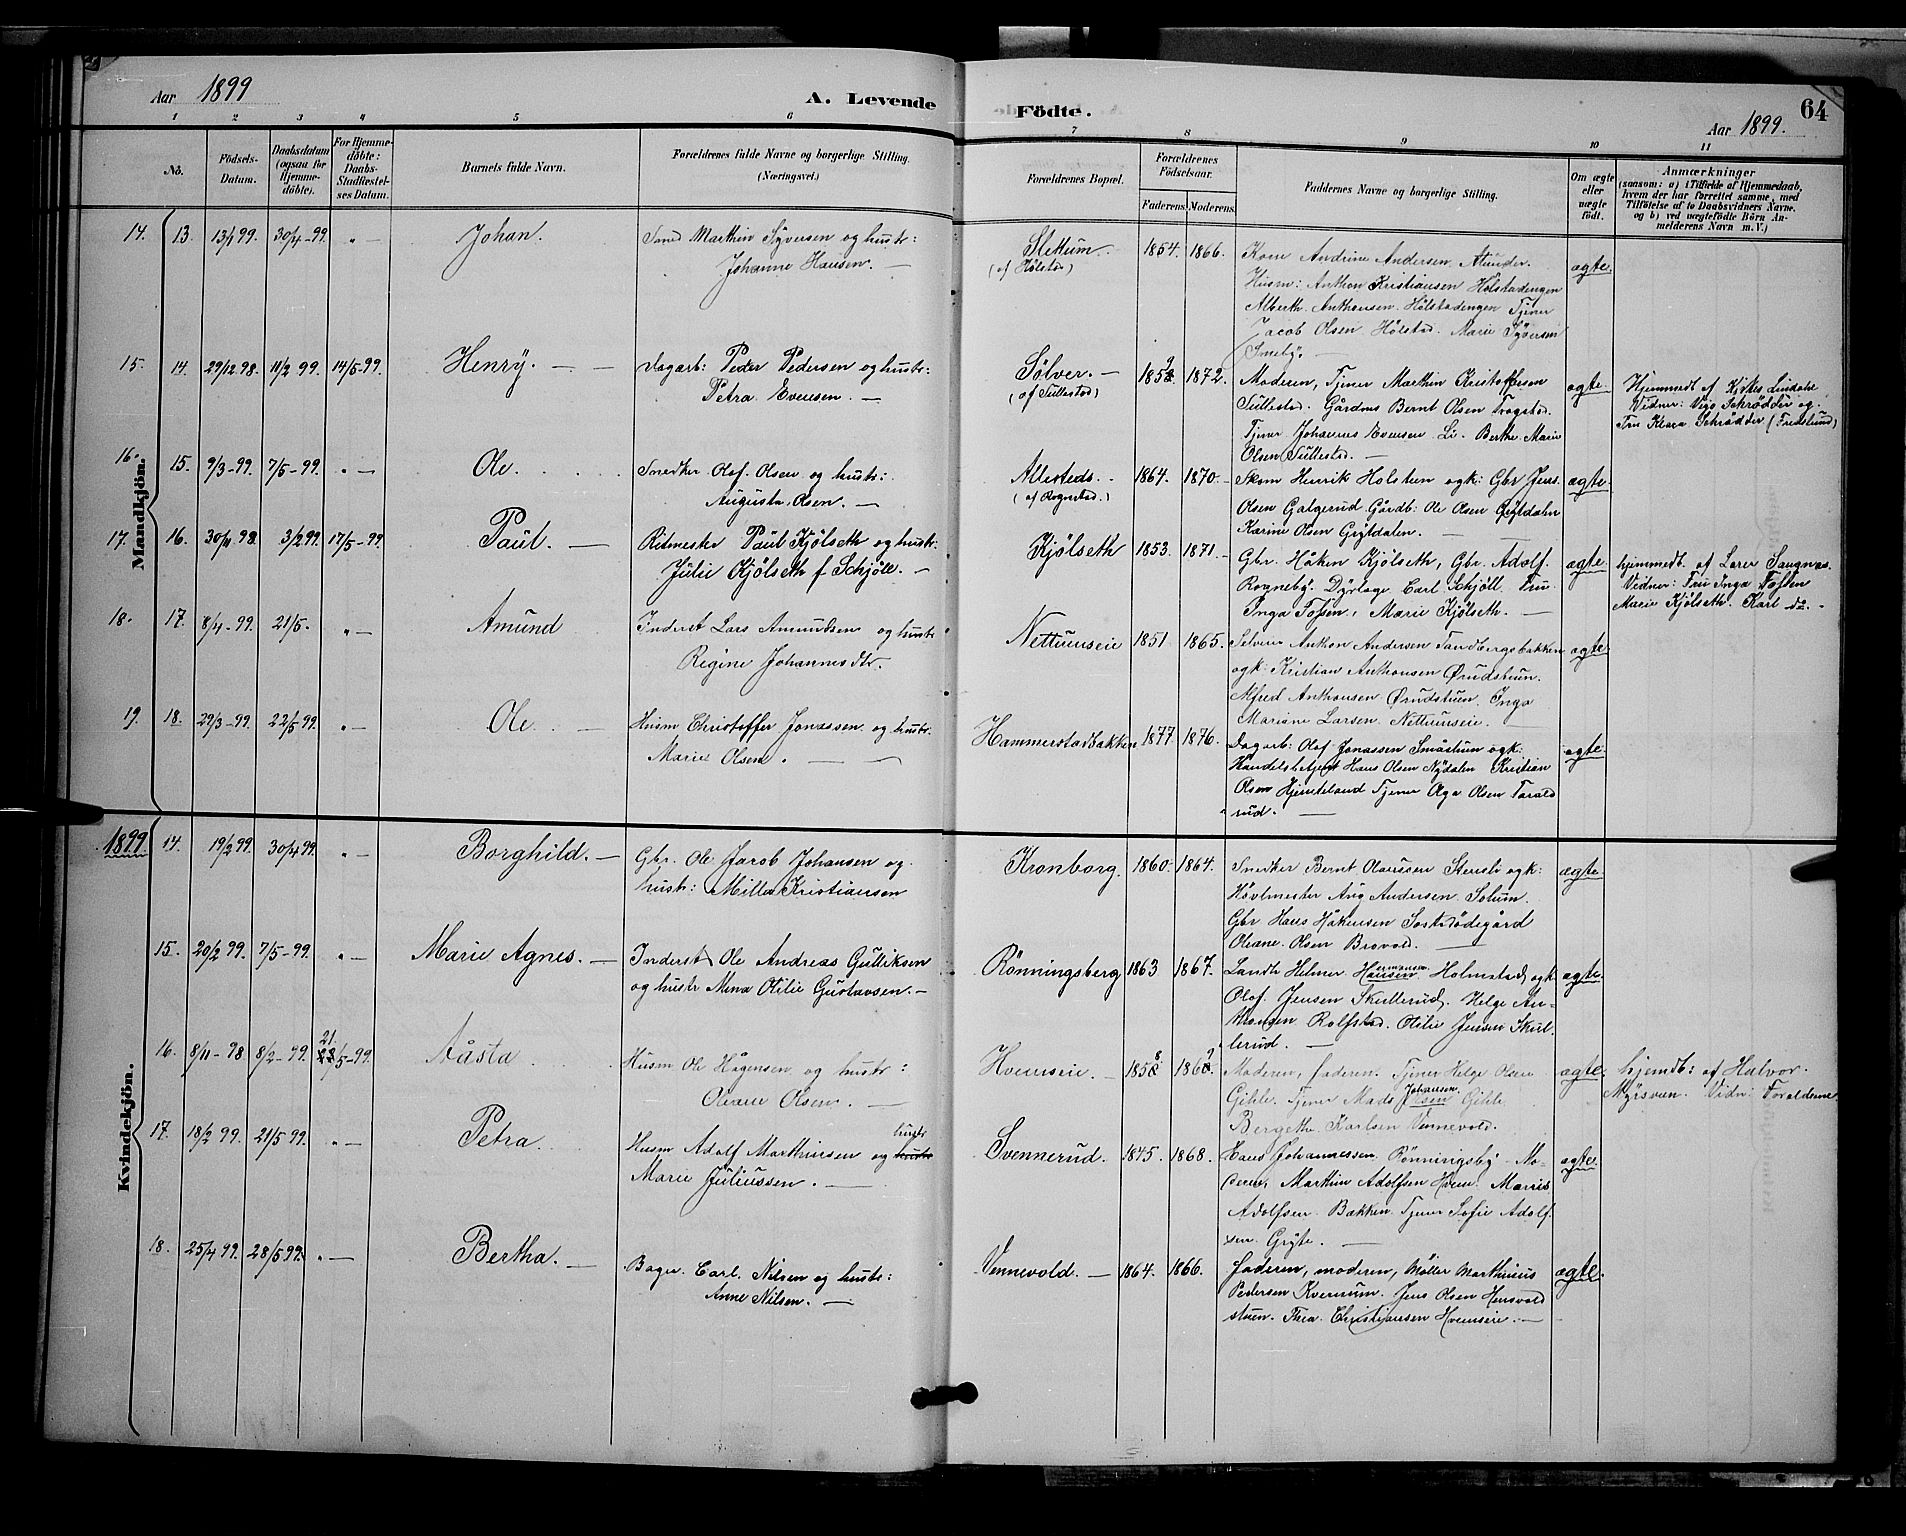 Aar 1899
A. Levende
Födte.
64
Aar 1899.
1 2 3 4 5 6 7 8 9 10 11
No.
Födsels-
Datum.
Daabsdatum
(ogsaa for
Hjemme-
döbte).
For Hjemme-
döbte:
Daabs-
Stadfæstel-
ses Datum.
Barnets fulde Navn.
Forældrenes fulde Navne og borgerlige Stilling.
(Næringsvei.)
Forældrenes Bopæl.
Forældrenes
Födselsaar.
Faderens. Moderens.
Faddernes Navne og borgerlige Stilling.
Om ægte
eller
uægte
födt.
Anmærkninger
(saasom: a) i Tilfælde af Hjemmedaab,
hvem der har forrettet samme, med
Tilföielse af to Daabsvidners Navne,
og b) ved uægtefödte Börn An-
melderens Navn m. V.)
Mandkjön.
14. 13. 13/1 99. 30/4-99. " - Johan.
Smed Marthin Syversen og hustr:
Johanne Hansen. -
Slettum
(af Hølstad)
1854. 1866.
Kone Andrine Andersen
Husm: Anthon Kristiansen Hølstadengen
Alberth Anthonsen Hølstadengen Tjener
Jacob Olsen Hølstad. Marie Syversen
Smeby. -
ægte.
15. 14. 29/12 98. 11/2 99. 14/5-99. Henry. - -
Dagarb: Peder Pedersen og hustr:
Petra Evensen. -
Sølver. -
(af Tullestad)
1872.
Moderen, Tjener Marthin Kristoffersen
Tullestad. Gårdms Bernt Olsen Trogstad.
Tjener Johannes Evensen Li. Berthe Marie
Olsen Tullestad. -
ægte.
Hjemmedt af Kirkes Lindahl
Vidner: Vigo Schrødder og
Fru Klara Schrødder (Fredslund)
16. 15. 9/3-99. 7/5-99. " - Ole
Snedker Olaf Olsen og hustr:
Augusta Olsen. -
(af Rognstad.)
1864. 1870.
Skom Henrik Holstein ogk: Gbr Jens
Olsen Galgerud. Gårdb: Ole Olsen Grytdalen
Karine Olsen Grytdalen. -
ægte.
17. 16. 30/11 98. 3/2 99. 17/5-99. Paul. -
Ritmester Paul Kjølseth og hustr:
Julie Kjølseth f. Schjöll. -
Kjølseth
1853. 1871.
Gbr. Håken Kjølseth, Gbr. Adolf
Rogneby. Dyrlæge Carl Schjöll Fru
Inga Tofsen, Marie Kjølseth. -
ægte.
hjemmedt. af Lærer Saugnæs.
Vidner: Fru Inga Tofsen
Marie Kjølseth. Karl do. -
18. 17. 8/4-99. 21/5. " - Amund
Inderst Lars Amundsen og hustr
Regine Johannesdtr.
Nettumseie
1851 1865.
Selveier Anthon Andersen Tandbergsbakken
ogk: Kristian Anthonsen Ørudstuen.
Alfred Anthonsen Ørudstuen. Inga
Mariane Larsen Nettumseie. -
ægte.
19. 18. 29/3-99. 22/5 99. " - Ole. -
Husm Christoffer Jonassen og hustr:
Marie Olsen. - -
Hammerstadbakken
1877. 1876.
Dagarb: Olaf Jonassen Småstuen ogk:
Handelsbetjent Hans Olsen Nydalen Kristian
Olsen Hjemteland Tjener Olga Olsen Tarald
rud. -
ægte.
1899.
Kvindekjön.
14. 19/2 99. 30/4 99. " - Borghild. -
Gbr. Ole Jacob Johansen og
hustr: Milla Kristiansen
Kronborg.
1860. 1864.
Snedker Bernt Olaussen Stensli ogk:
Høvlmester Aug Andersen Solum.
Gbr Hans Håkensen Sostadödegård
Oleane Olsen Brovold. -
ægte
15. 20/2 99. 7/5-99. " - Marie Agnes. -
Inderst Ole Andreas Gulliksen
og hustr Mina Otilie Gustavsen. -
Rönningsberg
1863 1867.
Landh Helmer Hansen Holmstad, ogk
Olaf Jensen Skullerud. Helge An-
thonsen Rolfstad. Otilie Jensen Skul-
lerud. -
ægte.
16. 8/11-98. 8/2-99. 21/5-99. Aåsta
Husm Ole Hågensen og hustr:
Oleane Olsen. -
Hvemseie. -
Moderen, faderen. Tjener Helge Olsen
Gihle. Tjener Mads Johansen Gihle
Bergethe Karlsen Vennevold.
ægte.
hjemdt: af Halvor
Myrsveen. Vidn: Foralderne.
17. 18/2 99. 21/5 99. " - Petra
Husm Adolf Marthinsen og hustr
Marie Juliussen. -
Svennerud.
1845. 1868.
Hans Johannessen Rønningsby Mo-
deren, Marthin Adolfsen Hvem.
Adolfsen Bakken. Tjener Sofie Adolf
sen. Gryte. -
ægte.
18. 25/4 99. 28/5 99. " - Bertha. -
Bager. Carl. Nilsen og hustr:
Anne Nilsen. -
Vennevold. -
1864. 1866.
faderen, moderen, Møller Marthinus
Pedersen Kvernum. Jens Olsen Hensvold
stuen. Thea Christiansen Hvemseie. -
ægte.